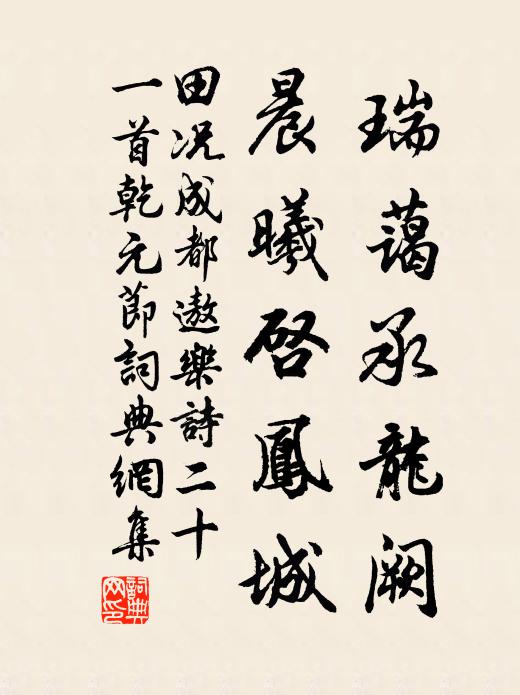 瑞藹承龍闕
晨曦啓鳳城
田況成都遨樂詩二十
一首乾元節詞典網集